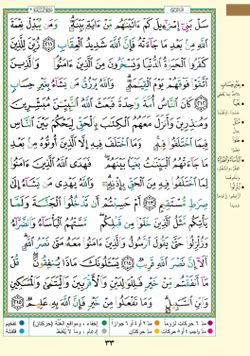 سَلْ بَنِىٓ إِسْرَٰٓءِيلَ كَمْ ءَاتَيْنَٰهُم مِّنْ ءَايَةٍۭ بَيِّنَةٍ ۗ وَمَن يُبَدِّلْ نِعْمَةَ
ٱللَّهِ مِنۢ بَعْدِ مَا جَآءَتْهُ فَإِنَّ ٱللَّهَ شَدِيدُ ٱلْعِقَابِ ٢١١ زُيِّنَ لِلَّذِينَ
كَفَرُوا۟ ٱلْحَيَوٰةُ ٱلدُّنْيَا وَيَسْخَرُونَ مِنَ ٱلَّذِينَ ءَامَنُوا۟ ۘ وَٱلَّذِينَ
ٱتَّقَوْا۟ فَوْقَهُمْ يَوْمَ ٱلْقِيَٰمَةِ ۗ وَٱللَّهُ يَرْزُقُ مَن يَشَآءُ بِغَيْرِ حِسَابٍ
٢١٢ كَانَ ٱلنَّاسُ أُمَّةً وَٰحِدَةً فَبَعَثَ ٱللَّهُ ٱلنَّبِيِّـۧنَ مُبَشِّرِينَ
وَمُنذِرِينَ وَأَنزَلَ مَعَهُمُ ٱلْكِتَٰبَ بِٱلْحَقِّ لِيَحْكُمَ بَيْنَ ٱلنَّاسِ
فِيمَا ٱخْتَلَفُوا۟ فِيهِ ۚ وَمَا ٱخْتَلَفَ فِيهِ إِلَّا ٱلَّذِينَ أُوتُوهُ مِنۢ بَعْدِ
مَا جَآءَتْهُمُ ٱلْبَيِّنَٰتُ بَغْيًۢا بَيْنَهُمْ ۖ فَهَدَى ٱللَّهُ ٱلَّذِينَ ءَامَنُوا۟
لِمَا ٱخْتَلَفُوا۟ فِيهِ مِنَ ٱلْحَقِّ بِإِذْنِهِۦ ۗ وَٱللَّهُ يَهْدِى مَن يَشَآءُ إِلَىٰ
صِرَٰطٍ مُّسْتَقِيمٍ ٢١٣ أَمْ حَسِبْتُمْ أَن تَدْخُلُوا۟ ٱلْجَنَّةَ وَلَمَّا
يَأْتِكُم مَّثَلُ ٱلَّذِينَ خَلَوْا۟ مِن قَبْلِكُم ۖ مَّسَّتْهُمُ ٱلْبَأْسَآءُ وَٱلضَّرَّآءُ
وَزُلْزِلُوا۟ حَتَّىٰ يَقُولَ ٱلرَّسُولُ وَٱلَّذِينَ ءَامَنُوا۟ مَعَهُۥ مَتَىٰ نَصْرُ ٱللَّهِ ۗ
أَلَآ إِنَّ نَصْرَ ٱللَّهِ قَرِيبٌ ٢١٤ يَسْـَٔلُونَكَ مَاذَا يُنفِقُونَ ۖ قُلْ
مَآ أَنفَقْتُم مِّنْ خَيْرٍ فَلِلْوَٰلِدَيْنِ وَٱلْأَقْرَبِينَ وَٱلْيَتَٰمَىٰ وَٱلْمَسَٰكِينِ
وَٱبْنِ ٱلسَّبِيلِ ۗ وَمَا تَفْعَلُوا۟ مِنْ خَيْرٍ فَإِنَّ ٱللَّهَ بِهِۦ عَلِيمٌ ٢١٥
٣٣